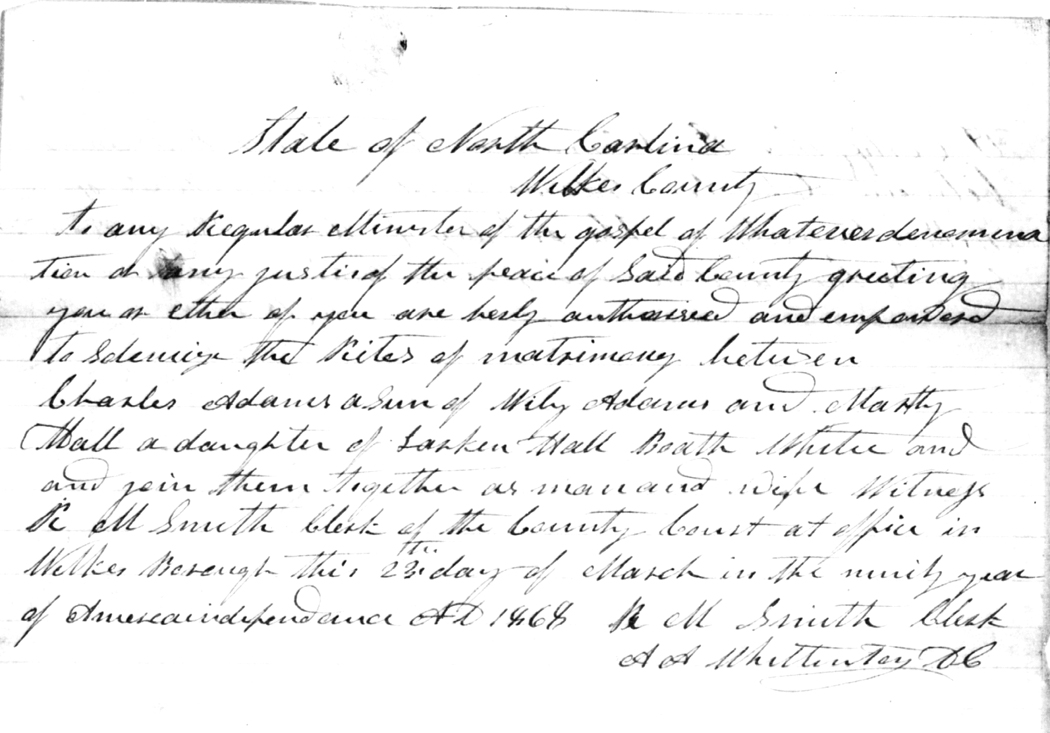 State of North Carlina
Wilkes County
to any Regular Minister of the gospel of Whatever denomena
tion or any justis of the peace of Said County greeting
you or ether of you are herby authorised and empowered
to Solemize the Rites of matrimony between
Charles Adams a Sun of Wily Adams and Marthy
Hall a daughter of Larken Hall Boath White and
and join them together as man and wife Witness
R M Smith Clerk of the County Court at office in
Wilkes Borough this 23th day of March in the ninity year
of America independance AD 1868 R M Smith Clerk
A A Whittentay DC